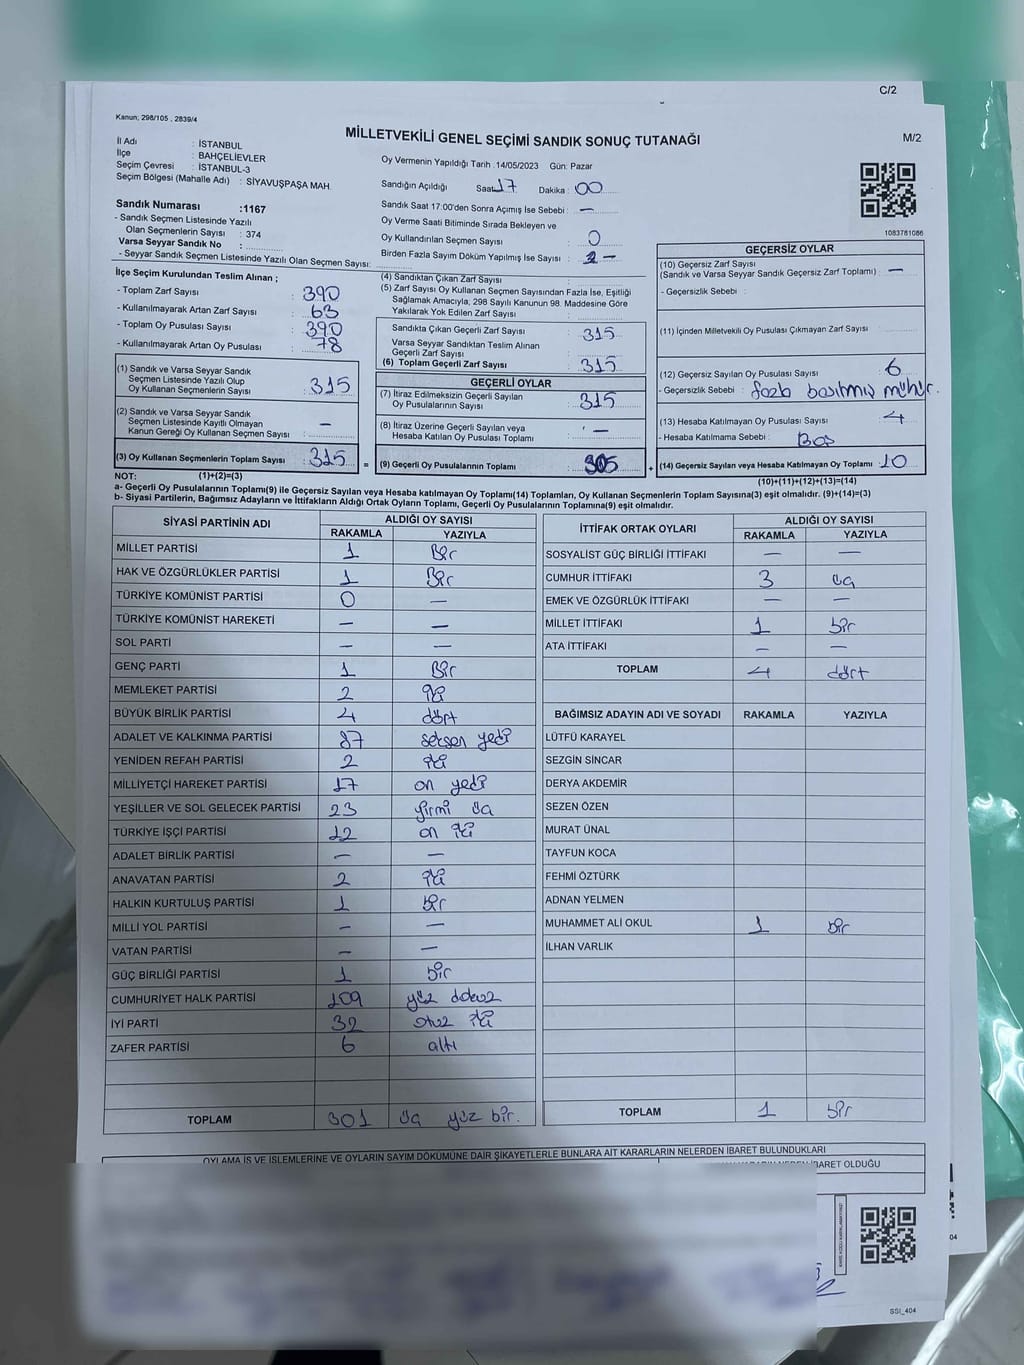 C/2
Kanun; 298/105 , 2839/4
MİLLETVEKİLİ GENEL SEÇİMİ SANDIK SONUÇ TUTANAĞI
M/2
İl Adı : İSTANBUL
İlçe : BAHÇELİEVLER
Seçim Çevresi : İSTANBUL-3
Seçim Bölgesi (Mahalle Adı) : SİYAVUŞPAŞA MAH.
Sandık Numarası :1167
- Sandık Seçmen Listesinde Yazılı
Olan Seçmenlerin Sayısı : 374
Varsa Seyyar Sandık No :
- Seyyar Sandık Seçmen Listesinde Yazılı Olan Seçmen Sayısı:
Oy Vermenin Yapıldığı Tarih :14/05/2023 Gün: Pazar
Sandığın Açıldığı Saat: 17 Dakika : 00
Sandık Saat 17:00'den Sonra Açımış İse Sebebi : —
Oy Verme Saati Bitiminde Sırada Bekleyen ve
Oy Kullandırılan Seçmen Sayısı : 0
Birden Fazla Sayım Döküm Yapılmış İse Sayısı : —
1083781086
İlçe Seçim Kurulundan Teslim Alınan ;
- Toplam Zarf Sayısı : 390
- Kullanılmayarak Artan Zarf Sayısı : 63
- Toplam Oy Pusulası Sayısı : 390
- Kullanılmayarak Artan Oy Pusulası : 78
(1) Sandık ve Varsa Seyyar Sandık
Seçmen Listesinde Yazılı Olup
Oy Kullanan Seçmenlerin Sayısı : 315
(2) Sandık ve Varsa Seyyar Sandık
Seçmen Listesinde Kayıtlı Olmayan
Kanun Gereği Oy Kullanan Seçmen Sayısı : —
(3) Oy Kullanan Seçmenlerin Toplam Sayısı : 315
(4) Sandıktan Çıkan Zarf Sayısı :
(5) Zarf Sayısı Oy Kullanan Seçmen Sayısından Fazla İse, Eşitliği
Sağlamak Amacıyla, 298 Sayılı Kanunun 98. Maddesine Göre
Yakılarak Yok Edilen Zarf Sayısı :
Sandıkta Çıkan Geçerli Zarf Sayısı : 315
Varsa Seyyar Sandıktan Teslim Alınan
Geçerli Zarf Sayısı :
(6) Toplam Geçerli Zarf Sayısı : 315
GEÇERLİ OYLAR
(7) İtiraz Edilmeksizin Geçerli Sayılan
Oy Pusulalarının Sayısı : 315
(8) İtiraz Üzerine Geçerli Sayılan veya
Hesaba Katılan Oy Pusulası Toplamı : —
= (9) Geçerli Oy Pusulalarının Toplamı : 305
GEÇERSİZ OYLAR
(10) Geçersiz Zarf Sayısı
(Sandık ve Varsa Seyyar Sandık Geçersiz Zarf Toplamı) : —
- Geçersizlik Sebebi :
(11) İçinden Milletvekili Oy Pusulası Çıkmayan Zarf Sayısı :
(12) Geçersiz Sayılan Oy Pusulası Sayısı : 6
- Geçersizlik Sebebi : fazla basılmış mühür.
(13) Hesaba Katılmayan Oy Pusulası Sayısı : 4
- Hesaba Katılmama Sebebi : Boş
+ (14) Geçersiz Sayılan veya Hesaba Katılmayan Oy Toplamı : 10
NOT: (1)+(2)=(3)
(10)+(11)+(12)+(13)=(14)
a- Geçerli Oy Pusulalarının Toplamı(9) ile Geçersiz Sayılan veya Hesaba katılmayan Oy Toplamı(14) Toplamları, Oy Kullanan Seçmenlerin Toplam Sayısına(3) eşit olmalıdır. (9)+(14)=(3)
b- Siyasi Partilerin, Bağımsız Adayların ve İttifakların Aldığı Ortak Oyların Toplamı, Geçerli Oy Pusulalarının Toplamına(9) eşit olmalıdır.
SİYASİ PARTİNİN ADI ALDIĞI OY SAYISI
RAKAMLA YAZIYLA
MİLLET PARTİSİ 1 Bir
HAK VE ÖZGÜRLÜKLER PARTİSİ 1 Bir
TÜRKİYE KOMÜNİST PARTİSİ 0 —
TÜRKİYE KOMÜNİST HAREKETİ — —
SOL PARTİ — —
GENÇ PARTİ 1 Bir
MEMLEKET PARTİSİ 2 iki
BÜYÜK BİRLİK PARTİSİ 4 dört
ADALET VE KALKINMA PARTİSİ 87 seksen yedi
YENİDEN REFAH PARTİSİ 2 iki
MİLLİYETÇİ HAREKET PARTİSİ 17 on yedi
YEŞİLLER VE SOL GELECEK PARTİSİ 23 yirmi üç
TÜRKİYE İŞÇİ PARTİSİ 12 on iki
ADALET BİRLİK PARTİSİ — —
ANAVATAN PARTİSİ 2 iki
HALKIN KURTULUŞ PARTİSİ 1 bir
MİLLİ YOL PARTİSİ — —
VATAN PARTİSİ — —
GÜÇ BİRLİĞİ PARTİSİ 1 bir
CUMHURİYET HALK PARTİSİ 109 yüz dokuz
İYİ PARTİ 32 otuz iki
ZAFER PARTİSİ 6 altı
TOPLAM 301 üç yüz bir.
İTTİFAK ORTAK OYLARI ALDIĞI OY SAYISI
RAKAMLA YAZIYLA
SOSYALİST GÜÇ BİRLİĞİ İTTİFAKI — —
CUMHUR İTTİFAKI 3 üç
EMEK VE ÖZGÜRLÜK İTTİFAKI — —
MİLLET İTTİFAKI 1 bir
ATA İTTİFAKI — —
TOPLAM 4 dört
BAĞIMSIZ ADAYIN ADI VE SOYADI RAKAMLA YAZIYLA
LÜTFÜ KARAYEL
SEZGİN SİNCAR
DERYA AKDEMİR
SEZEN ÖZEN
MURAT ÜNAL
TAYFUN KOCA
FEHMİ ÖZTÜRK
ADNAN YELMEN
MUHAMMET ALİ OKUL 1 bir
İLHAN VARLIK
TOPLAM 1 bir
OYLAMA İŞ VE İŞLEMLERİNE VE OYLARIN SAYIM DÖKÜMÜNE DAİR ŞİKAYETLERLE BUNLARA AİT KARARLARIN NELERDEN İBARET BULUNDUKLARI
NEDEN İBARET OLDUĞU
04
SSI_404